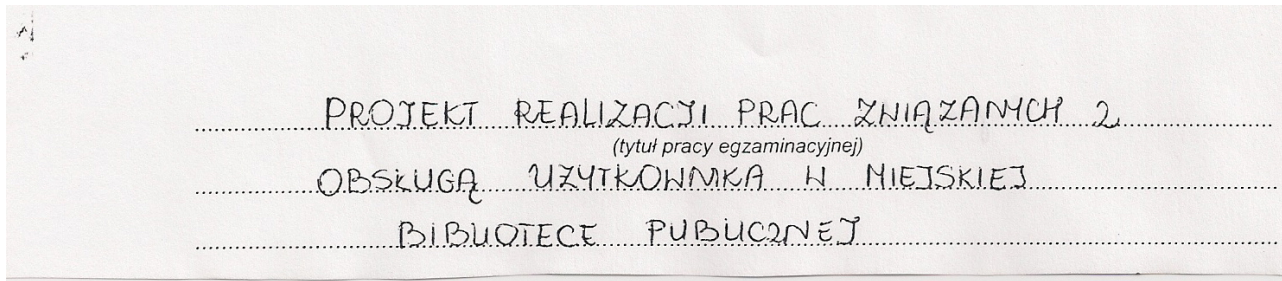 PROJEKT REALIZACJI PRAC ZWIĄZANYCH Z
(tytuł pracy egzaminacyjnej)
OBSŁUGĄ UŻYTKOWNIKA W MIEJSKIEJ
BIBLIOTECE PUBLICZNEJ